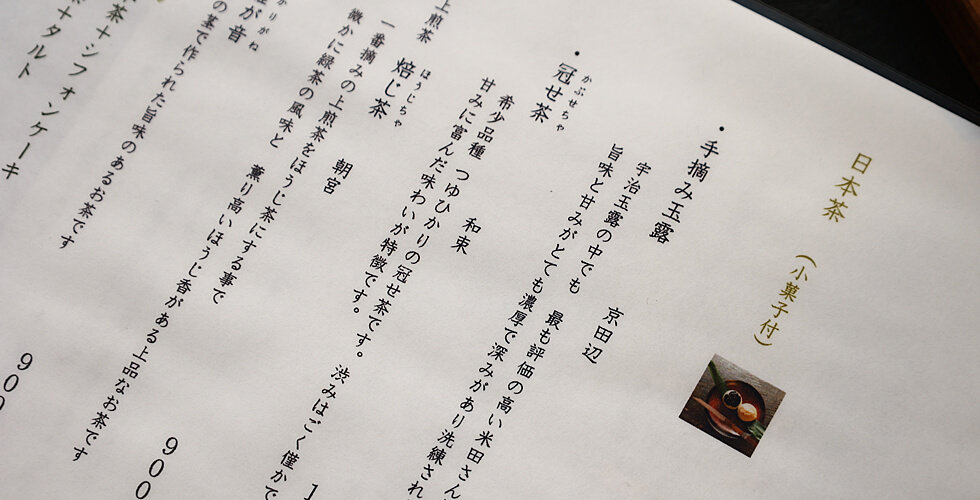 日本茶 (小菓子付)
・手摘み玉露 京田辺
宇治玉露の中でも 最も評価の高い米田さん
旨味と甘みがとても濃厚で深みがあり洗練され
・冠せ茶 和束
かぶせちゃ
希少品種 つゆひかりの冠せ茶です。渋みはごく僅かで
甘みに富んだ味わいが特徴です。
焙じ茶 朝宮
ほうじちゃ
一番摘みの上煎茶をほうじ茶にする事で
微かに緑茶の風味と 薫り高いほうじ香がある上品なお茶です
上煎茶
が音
かりがね
の茎で作られた旨味のあるお茶です
900
茶+シフォンケーキ
+タルト
900